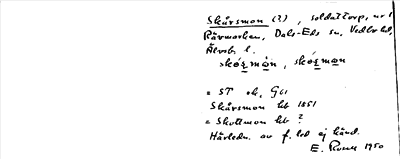 Skårsmon (?), soldattorp, nr 1
Rävmarken, Dals-Eds sn, Vedbo hd,
Älvsb. l.
skó̱ṟmòn, skó̱ṟmon
= ST ek. G61
Skårsmon hb 1851
= Skottmon hb ?
Härledn. av f. led ej känd.
E. 1950